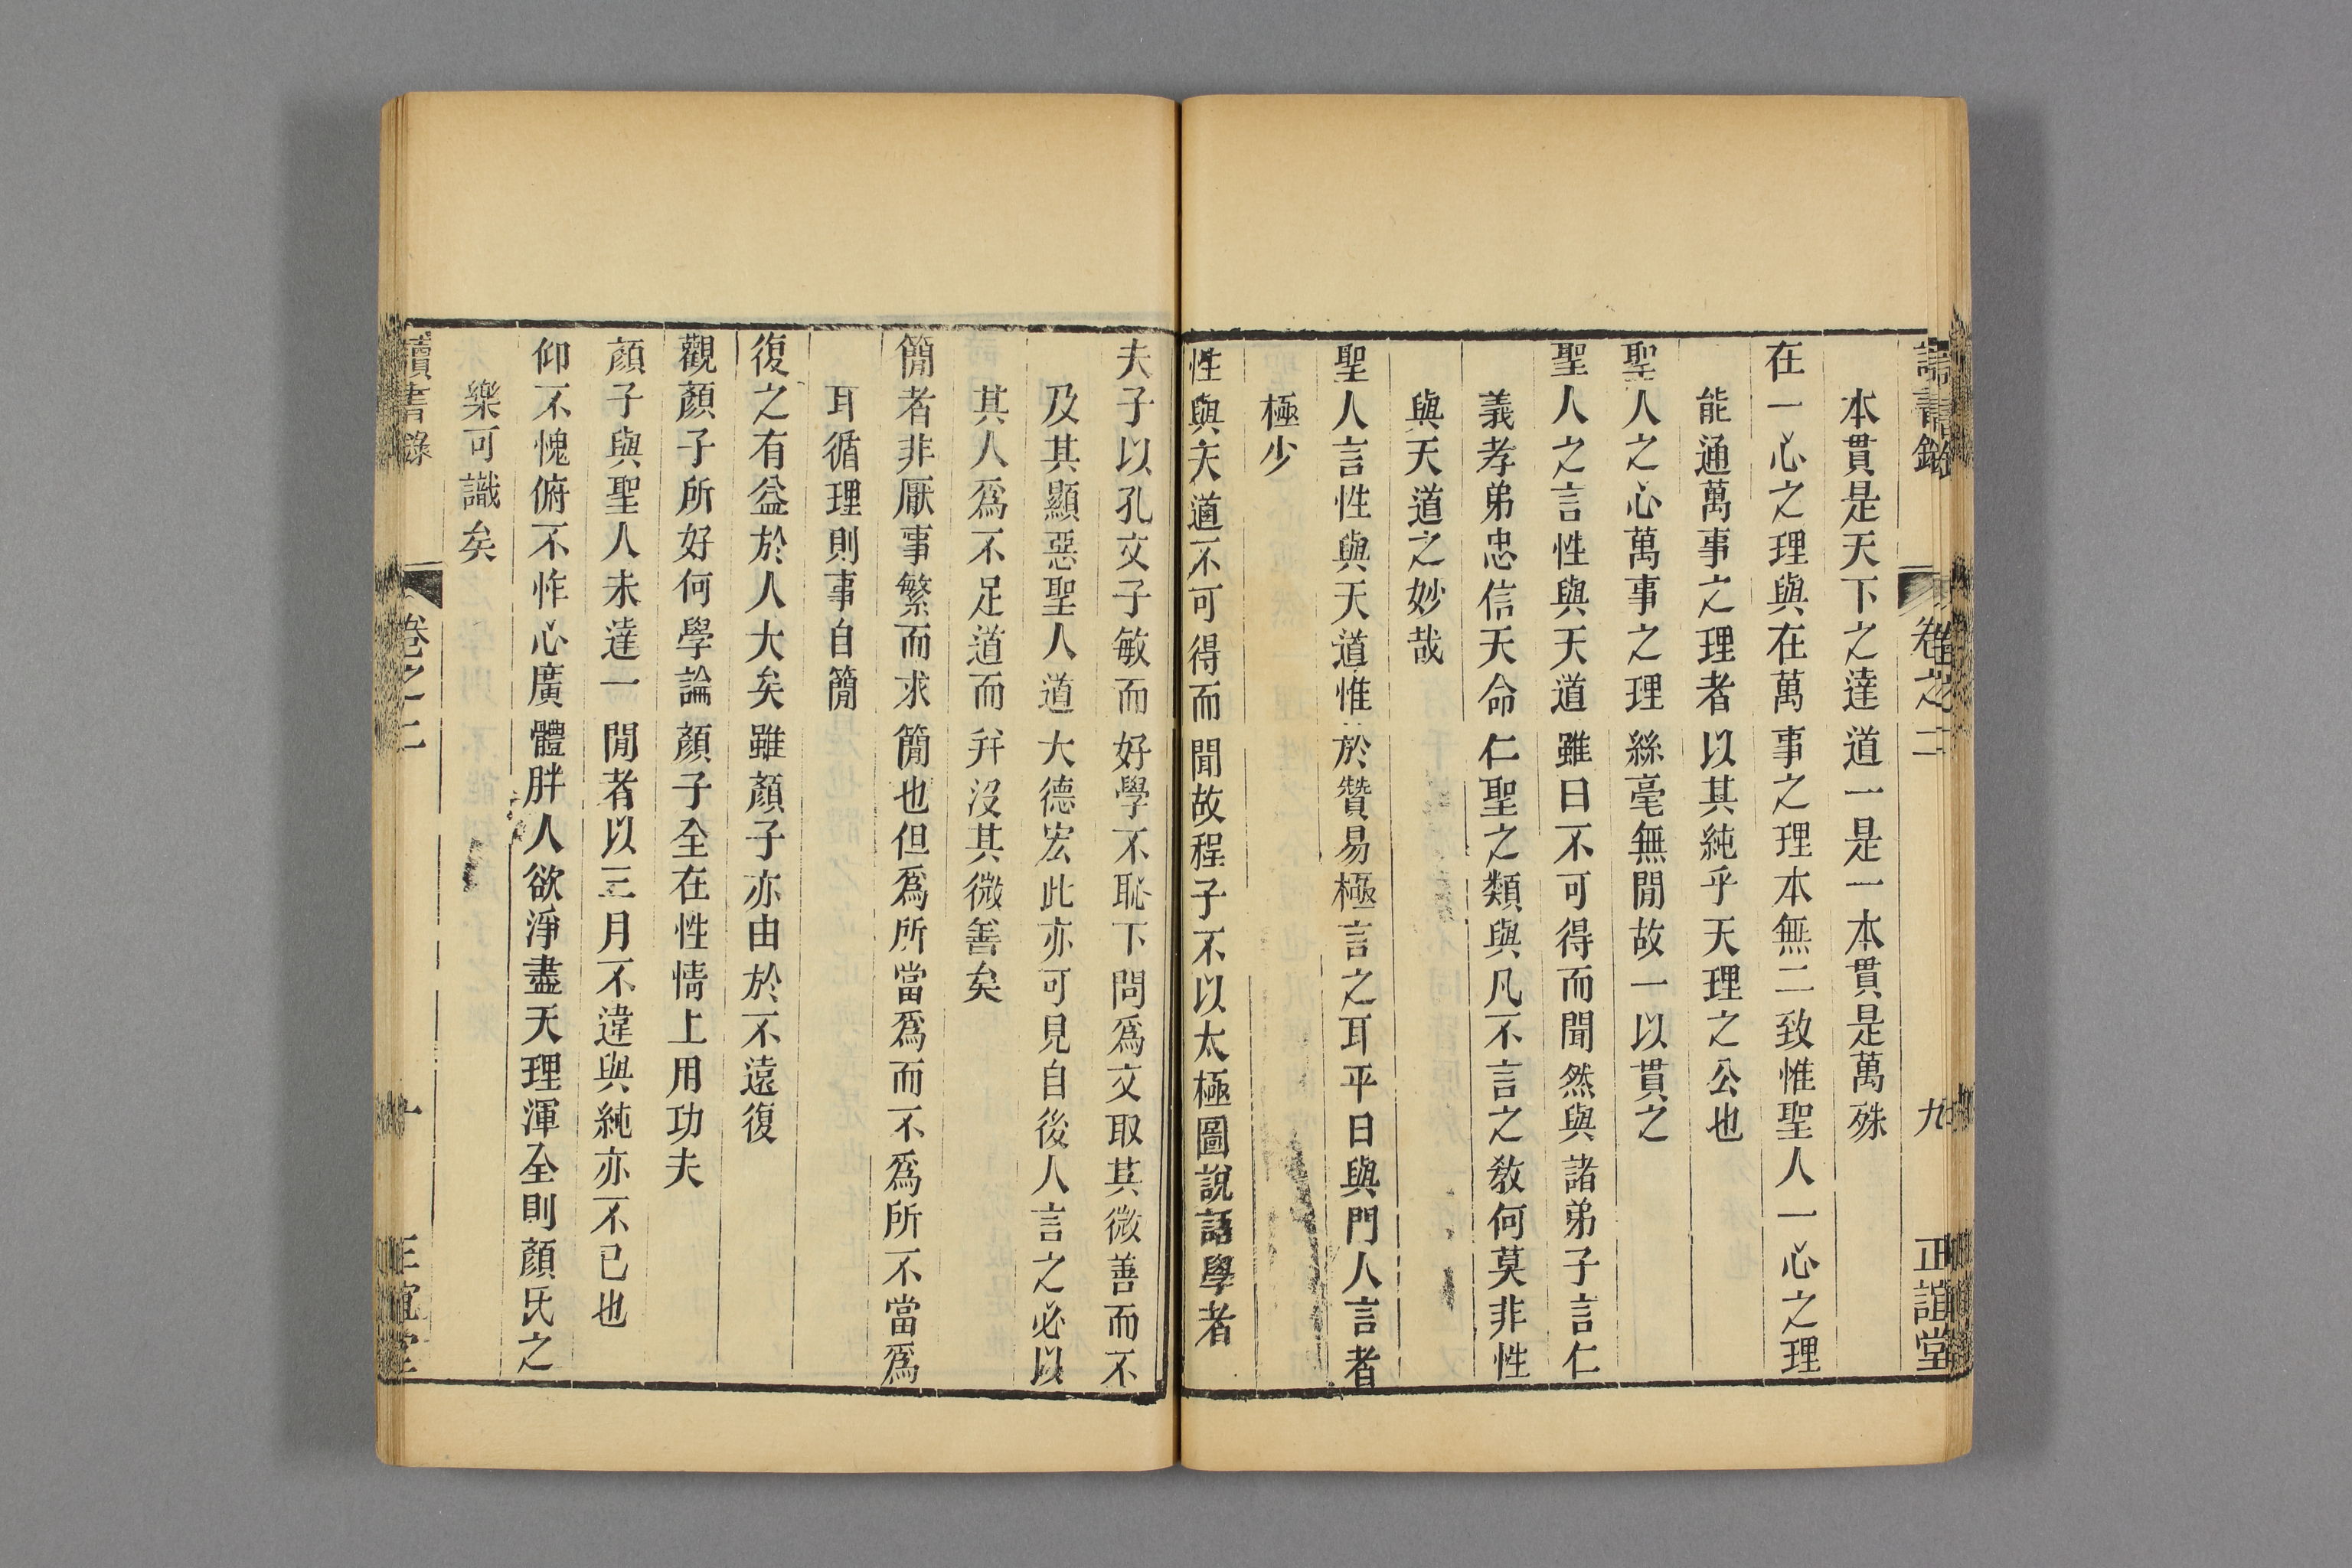 讀書錄 卷之二 九 正誼堂
本貫是天下之達道一是一本貫是萬殊
在一心之理與在萬事之理本無二致惟聖人一心之理
能通萬事之理者以其純乎天理之公也
聖人之心萬事之理絲毫無閒故一以貫之
聖人之言性與天道雖曰不可得而聞然與諸弟子言仁
義孝弟忠信天命仁聖之類與凡不言之敎何莫非性
與天道之妙哉
聖人言性與天道惟於贊易極言之耳平日與門人言者
極少
性與天道不可得而聞故程子不以太極圖說語學者
夫子以孔文子敏而好學不恥下問爲文取其微善而不
及其顯惡聖人道大德宏此亦可見自後人言之必以
其人爲不足道而幷沒其微善矣
簡者非厭事繁而求簡也但爲所當爲而不爲所不當爲
耳循理則事自簡
復之有益於人大矣雖顏子亦由於不遠復
觀顏子所好何學論顏子全在性情上用功夫
顏子與聖人未達一閒者以三月不違與純亦不已也
仰不愧俯不怍心廣體胖人欲淨盡天理渾全則顏氏之
樂可識矣
讀書錄 卷之二 十 正誼堂